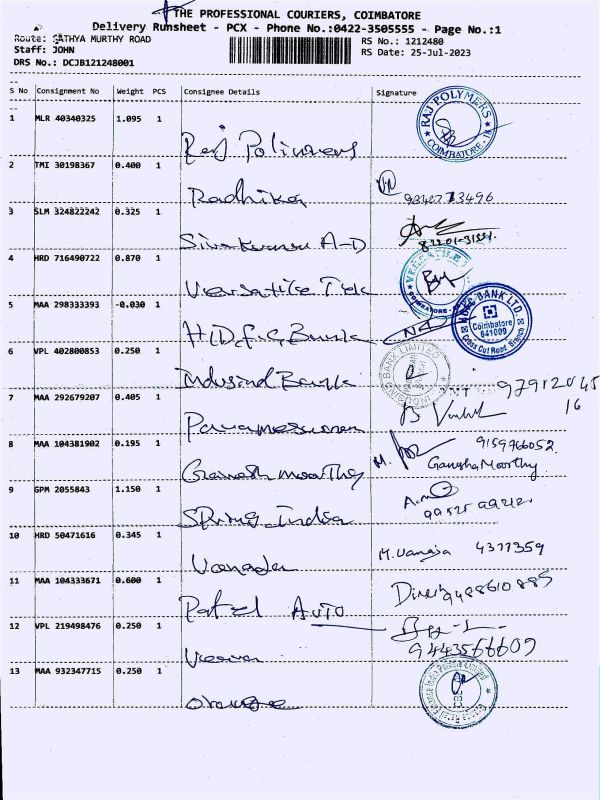 THE PROFESSIONAL COURIERS, COIMBATORE
Delivery Runsheet - PCX - Phone No.:0422-3505555 - Page No.:1
Route: SATHYA MURTHY ROAD
RS No.: 1212480
Staff: JOHN
RS Date: 25-Jul-2023
DRS No.: DCJB121248001
S No Consignment No Weight PCS Consignee Details Signature
1 MLR 40340325 1.095 1
RAJ POLYMERS
COIMBATORE
Raj Polimers
2 TMI 30198367 0.400 1
Radhika
3 SLM 324822242 0.325 1
A-D
4 HRD 716490722 0.870 1
5 MAA 298333393 -0.030 1
HDFC BANK LTD.
Coimbatore
641009
Cross Cut Road Branch
6 VPL 402800853 0.250 1
BANK LIMITED
Indusind Bank
7 MAA 292679207 0.405 1
16
8 MAA 104381902 0.195 1
9159966052
Ganesh moorthy
Ganesha Moorthy
9 GPM 2055843 1.150 1
Spring India
10 HRD 50471616 0.345 1
M.Vanaja 4377359
11 MAA 104333671 0.600 1
Patel AUTO
12 VPL 219498476 0.250 1
9443566609
13 MAA 932347715 0.250 1
Orange